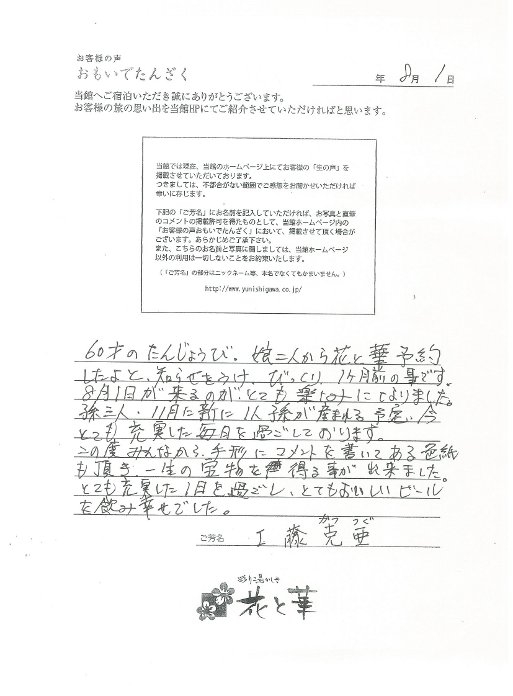 お客様の声
おもいでたんざく
年 8月 1日
当館へご宿泊いただき誠にありがとうございます。
お客様の旅の思い出を当館HPにてご紹介させていただければと思います。
当館では現在、当館のホームページ上にてお客様の「生の声」を
掲載させていただいております。
つきましては、不都合がない範囲でご感想をお聞かせいただければ
幸いに存じます。
下記の「ご芳名」にお名前を記入していただければ、お写真と直筆
のコメントの掲載許可を得たものとして、当館ホームページ内の
「お客様の声おもいでたんざく」において、掲載させて頂く場合が
ございます。あらかじめご了承下さい。
また、こちらのお名前と写真に関しましては、当館ホームページ
以外の利用は一切しないことをお約束いたします。
(「ご芳名」の部分はニックネーム等、本名でなくてもかまいません。)
http://www.yunishigawa.co.jp/
60才のたんじょうび。娘二人から花と華予約
したよと、知らせをうけ、びっくり、1ヶ月前の事です。
8月1日が来るのがとても楽しみになりました。
孫三人、11月に新に1人孫が産まれる予定、今
とても充実した毎日を過ごしております。
この度みんなから、手形にコメントを書いてある色紙
も頂き、一生の宝物を得る事が出来ました。
とても充実した1日を過ごし、とてもおいしいビール
を飲み幸せでした。
かつ つぐ
ご芳名 工藤 克亜
花と華